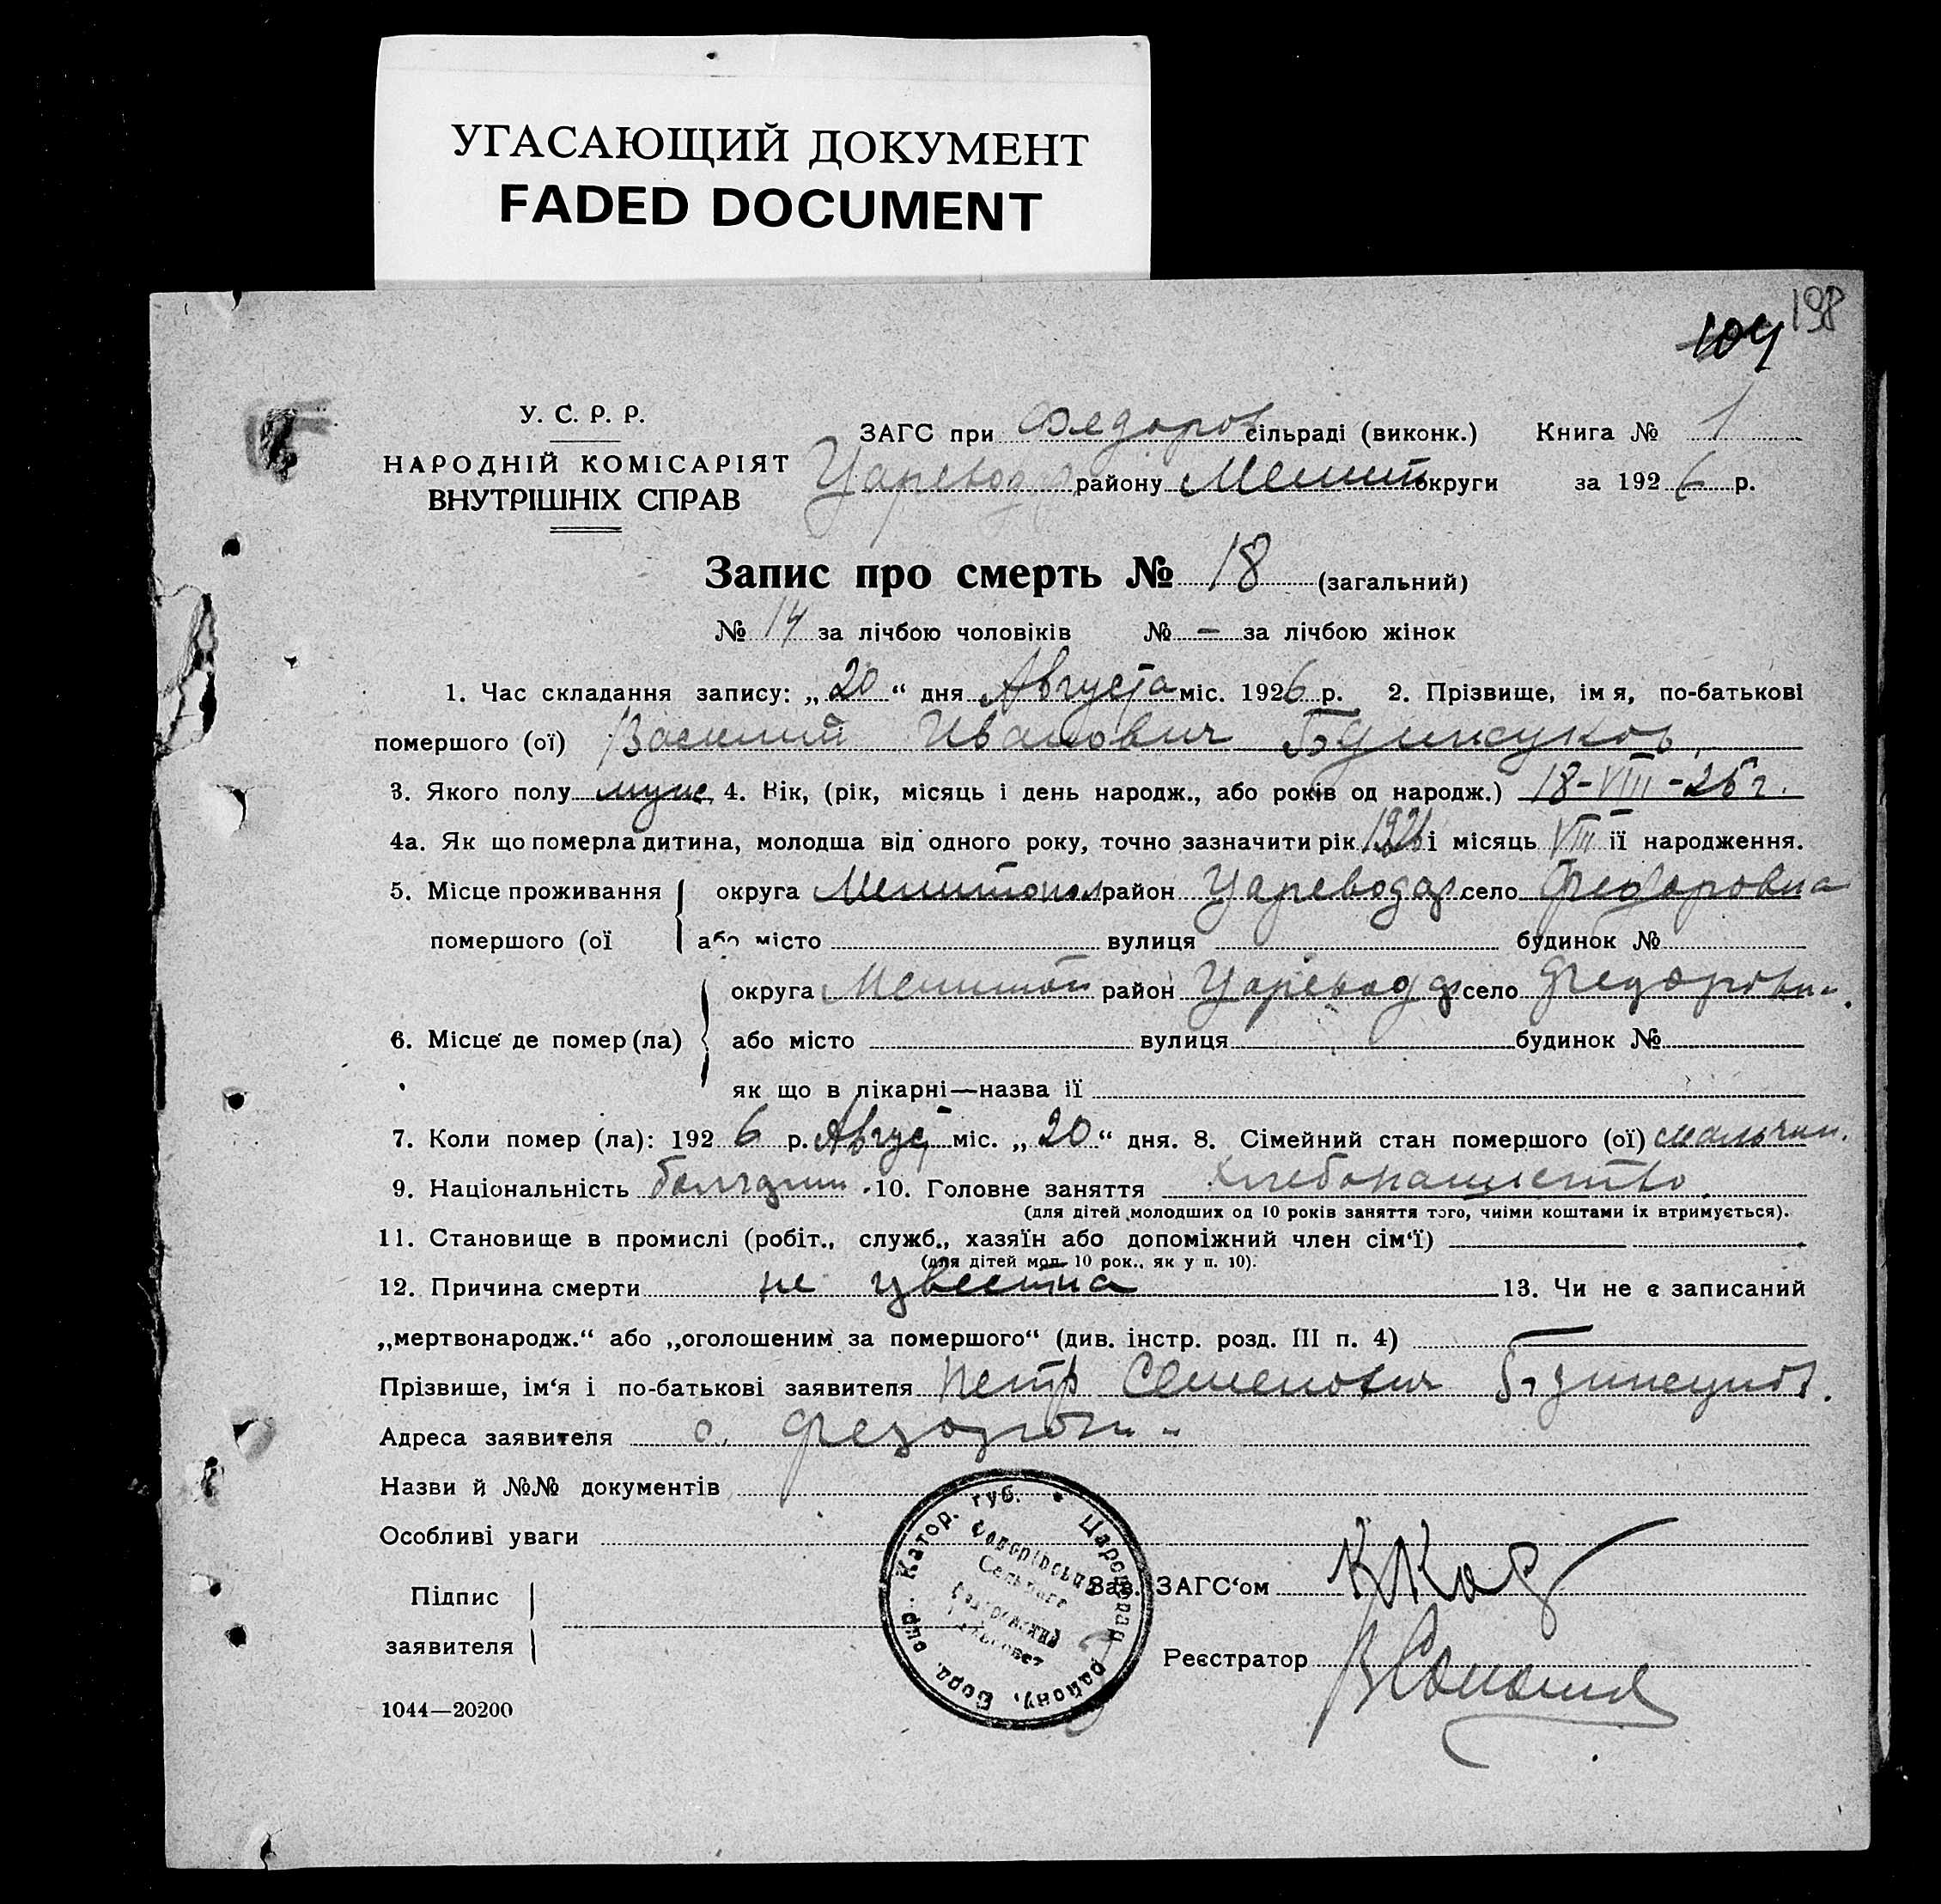 УГАСАЮЩИЙ ДОКУМЕНТ
FADED DOCUMENT
198
104
У. С. Р. Р.
НАРОДНІЙ КОМІСАРІЯТ
ВНУТРІШНІХ СПРАВ
ЗАГС при Федоров сільраді (виконк.) Книга № 1
Царевод району Мелит округи за 1926 р.
Запис про смерть № 18 (загальний)
№ 14 за лічбою чоловіків № — за лічбою жінок
1. Час складання запису: „20“ дня Августа міс. 1926 р. 2. Прізвище, імя, по-батькові
помершого (ої) Василий Иванович
3. Якого полу муж. 4. Вік, (рік, місяць і день народж., або років од народж.) 18-VIII-25 г.
4а. Як що померла дитина, молодша від одного року, точно зазначити рік і місяць VIII її народження.
5. Місце проживання округа Мелитопол район Цареводар село Федоровка
помершого (ої або місто вулиця будинок №
округа Мелитоп район Царевод село Федоровк
6. Місце де помер (ла) або місто вулиця будинок №
як що в лікарні—назва її
7. Коли помер (ла): 1926 р. Август міс. „20“ дня. 8. Сімейний стан помершого (ої) мальчик.
9. Національність болгарин. 10. Головне заняття хлебопашество.
(для дітей молодших од 10 років заняття того, чиїми коштами їх втримується).
11. Становище в промислі (робіт., служб., хазяїн або допоміжний член сім‘ї) —
(для дітей мол. 10 рок., як у п. 10).
12. Причина смерти не известна 13. Чи не є записаний
„мертвонародж.“ або „оголошеним за помершого“ (див. інстр. розд. III п. 4) —
Прізвище, ім‘я і по-батькові заявителя Петр Семенович
Адреса заявителя с. Федоровк
Назви й №№ документів
Особливі уваги
Зав. ЗАГС‘ом
Підпис
заявителя
Реєстратор
1044—20200